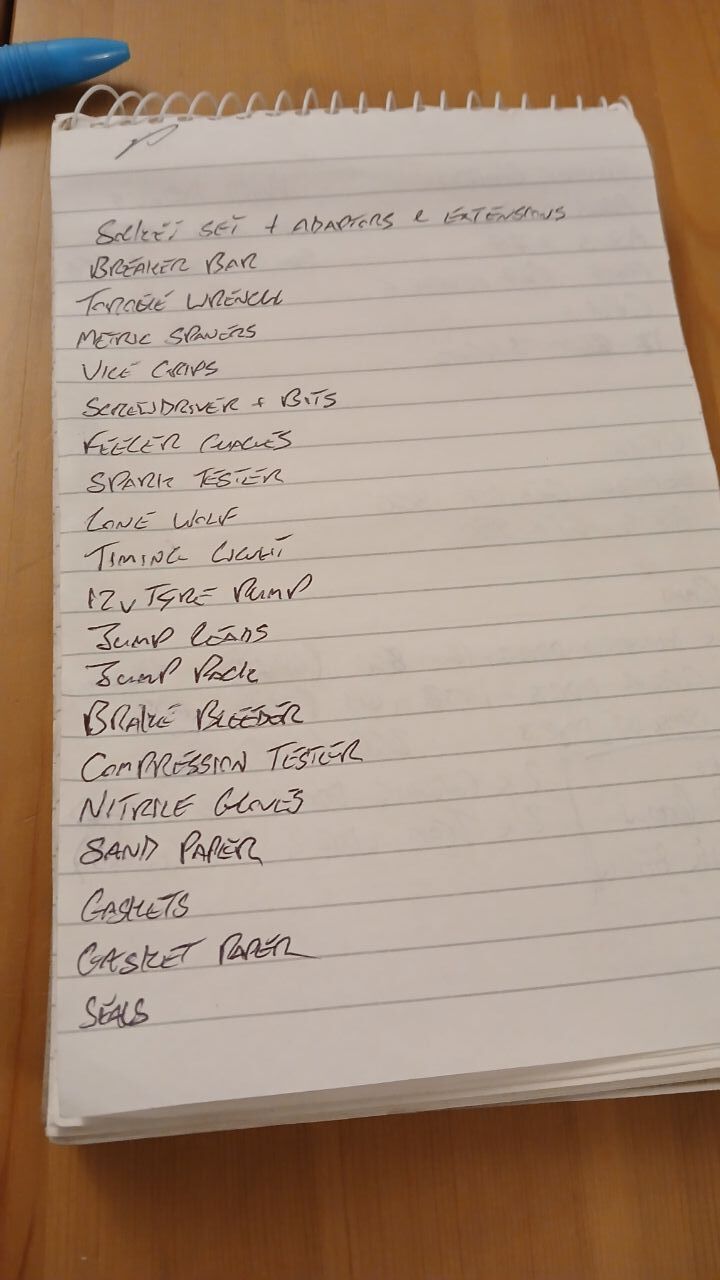 SOCKET SET + ADAPTORS & EXTENSIONS
BREAKER BAR
TORQUE WRENCH
METRIC SPANERS
VICE GRIPS
SCREWDRIVER + BITS
FEELER GUAGES
SPARK TESTER
LONE WOLF
TIMING LIGHT
12V TYRE PUMP
JUMP LEADS
JUMP PACK
BRAKE BLEEDER
COMPRESSION TESTER
NITRILE GLOVES
SAND PAPER
GASKETS
GASKET PAPER
SEALS